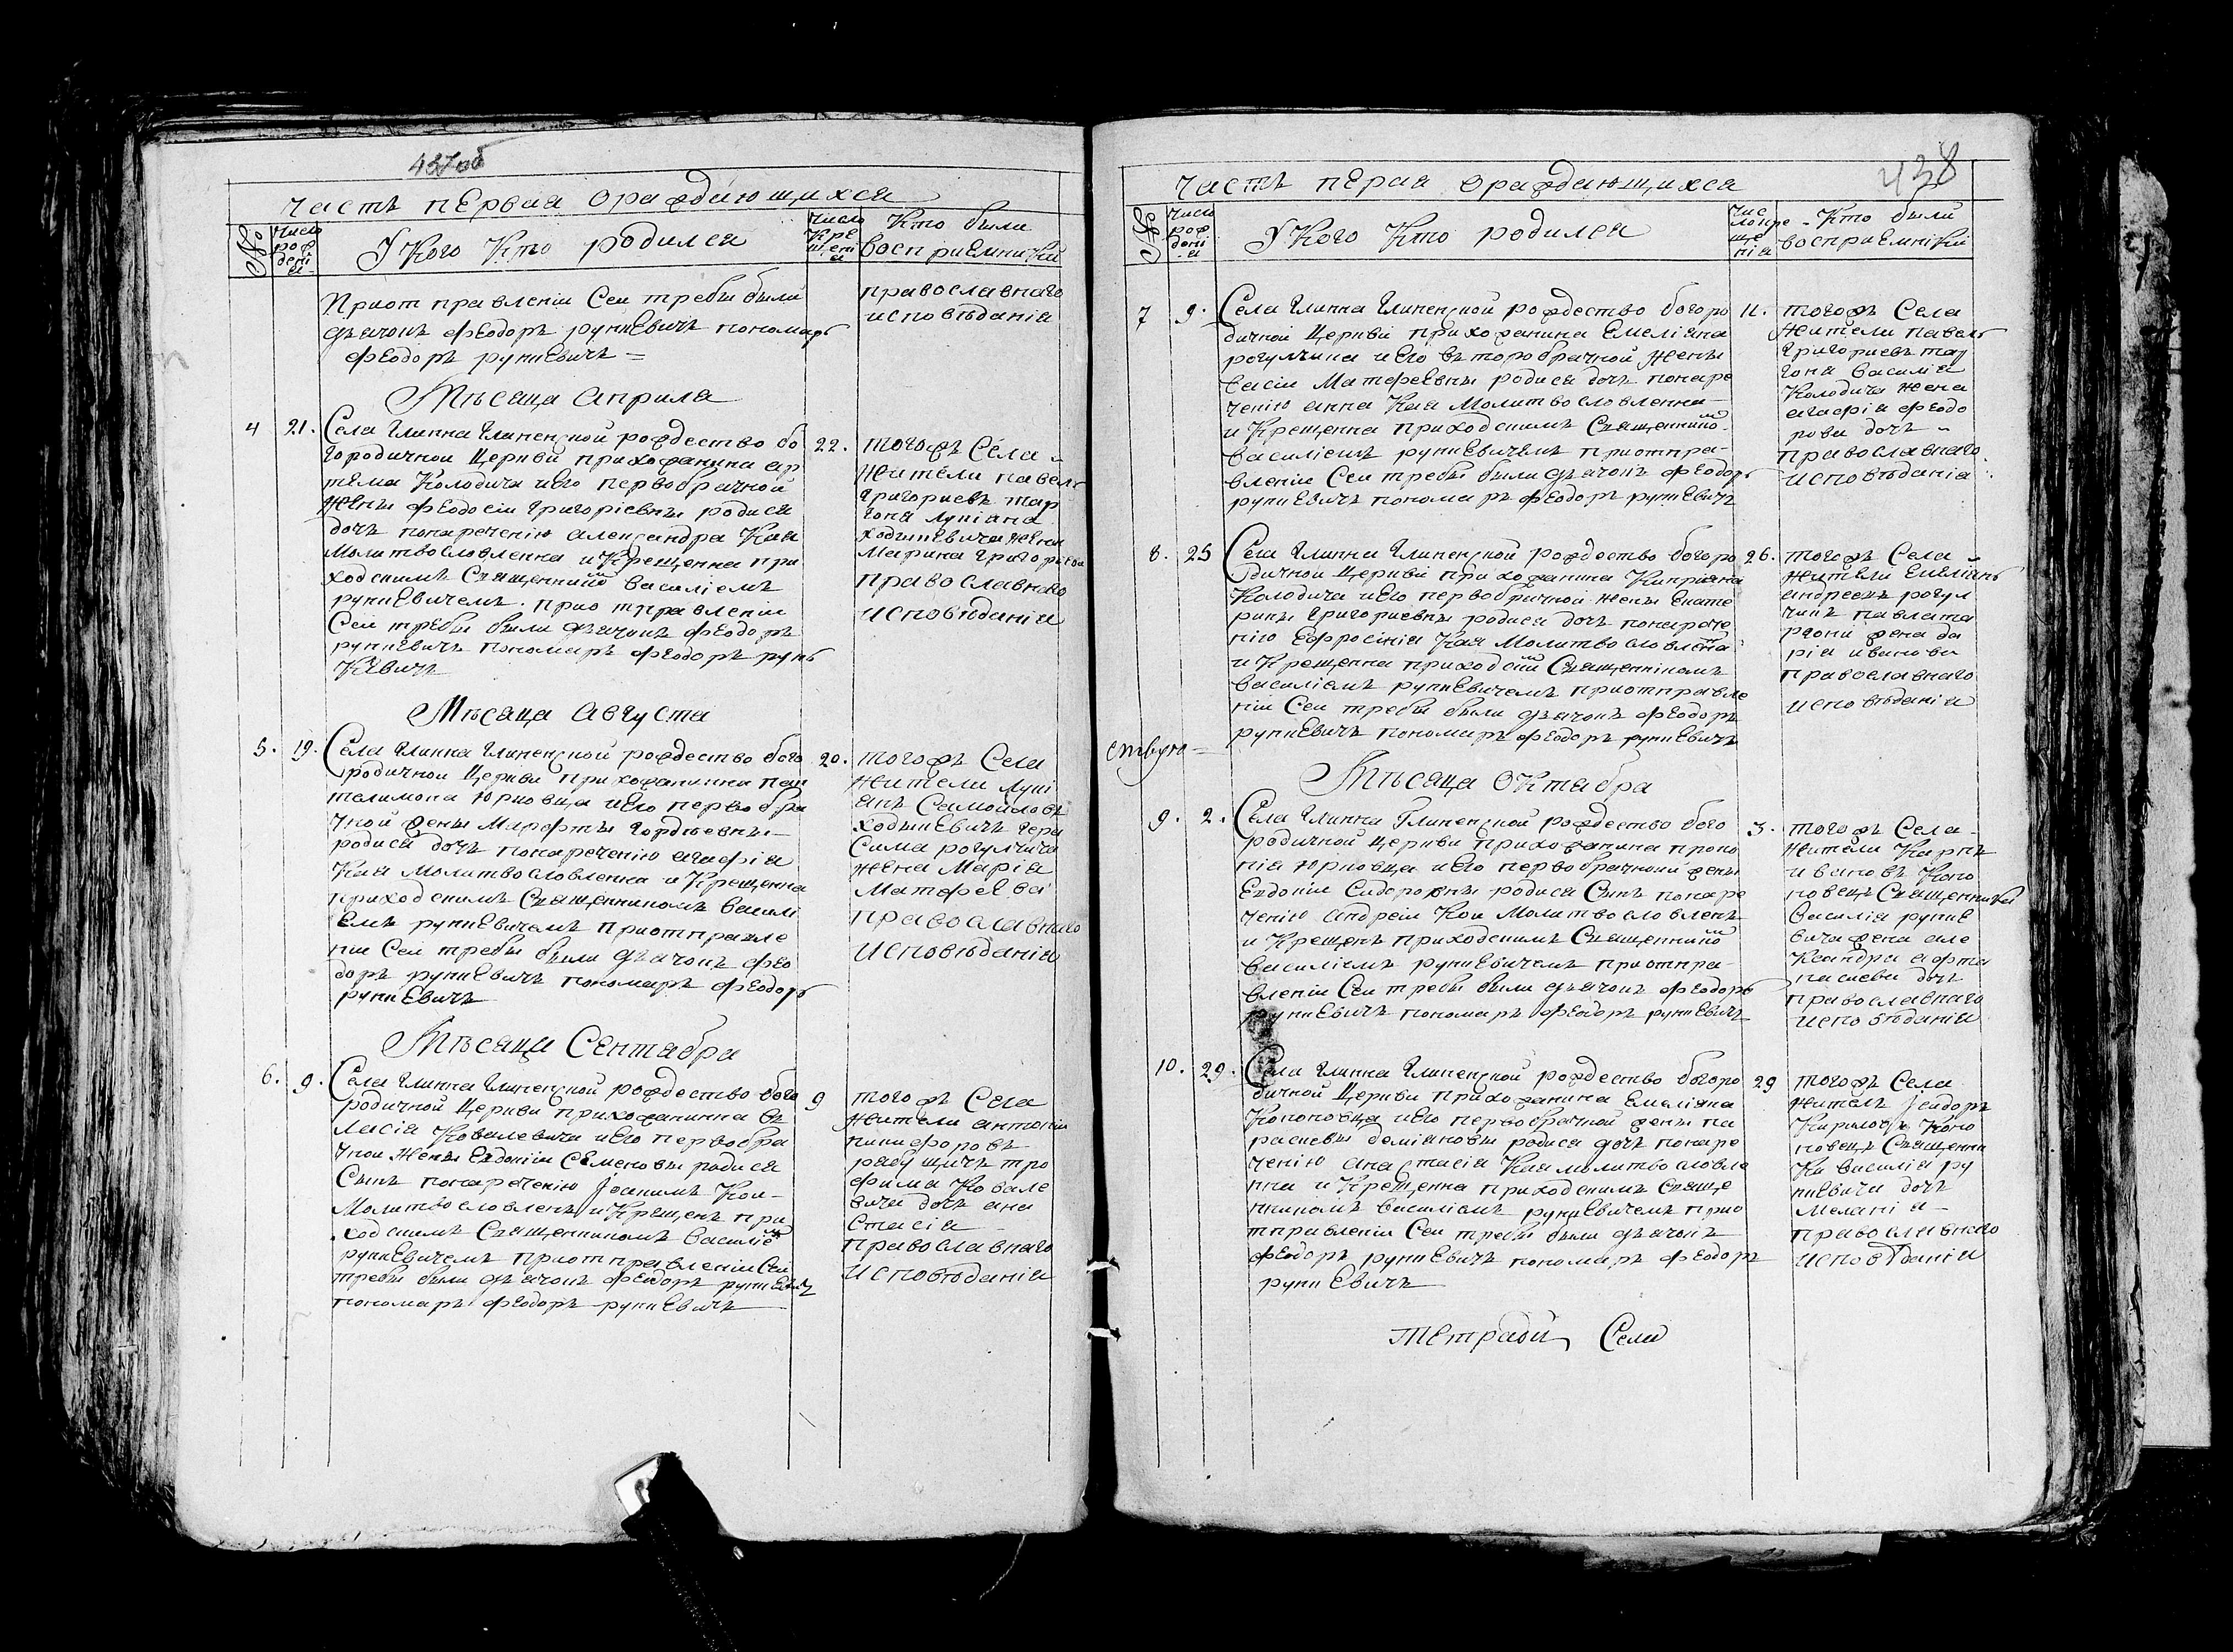 437об
Часть первая ораждающихся
№
Число рождения
У Кого Кто родился
Число Крещения
Кто были восприемники
Приот правлении Сеи требы были
дьячокъ Феодоръ рункевичъ пономарь
Феодоръ рункевичъ =
православнаго
исповѣданія
Мѣсяца Априля
4
21.
Села Глинна Глиненской рождество бо
городичной Церкви прихожанина ар
тема Колодича иего первобрачной
Жены Феодосіи Григоріевны родися
дочь понаречению александра Кая
Молитвословленна и Крещенна при
ходскимъ Священникомъ василіемъ
рункевичемъ. при отправлении
Сеи требы были дьячокъ Феодоръ
рункевичъ пономаръ Феодоръ рун
Кевичъ
22.
тогожъ Села -
Жители павелъ
Григориевъ тар
гоня Лукіана
ходыкевича жена
Марина Григориева
православнаго
исповѣданія
Мѣсяца Августа
5.
19.
Села Глинна Глиненской рождество бого
родичной Церкви прихожанинна пан
телимона Юрковца иего первобра
чной жены Марфты Гордѣевны
родися дочь понаречению агафія
Кая Молитвословленна и Крещенна
приходскимъ Священникомъ Васили
емъ рункевичемъ приотправле
нии Сеи требы были дьячокъ Фео
доръ рункевичъ пономаръ Феодоръ
рункевичъ
20.
тогожъ Села
Жители Луки
анъ Самойловъ
ходыкевичъ гера
сима рогулчича
жена Марія
Матфеева
православнаго
исповѣданія
Мѣсяца Сентабра
6.
9.
Села Глинна Глиненской рождество бого
родичной Церкви прихожанинна Вѣ
ласія Ковалевича иего первобра
чной Жены Евдокіи Семеновы родися
Сынъ понаречению Іоакимъ Кои -
Молитвословленъ и Крещенъ при
ходскимъ Священникомъ Василіемъ
рункевичемъ приотправлении Сеи
требы были дьячокъ Феодоръ рункевич
пономаръ Феодоръ рункевичъ
9
тогожъ Села
Жители антоній
никифоровъ
рабущичъ тро
фима Ковале
вича дочь ана
стасія
православнаго
исповѣданія
438
Часть перая ораждающихся
№
Число рождения
У Кого Кто родился
Число Крещения
Кто были восприемники
7
9.
Села Глинна Глиненской рождество богоро
дичной Церкви прихожанина Емеліяна
рогулчича иего вьторобрачной жены
васіи Матфеевны родися дочь понаре
чению анна Кая Молитвословленна -
и Крещенна приходскимъ Священникомъ
Василіемъ рункевичемъ приотпра-
влении Сеи требы были дьячокъ Феодоръ
рункевичъ пономаръ Феодоръ рункевичъ
11.
тогожъ Села
Жители павелъ
Григориевъ тар
гоня василія
Колодича жена
агафія Феодо
рова дочь
православнаго
исповѣданія
8.
25
Села Глинна Глиненской рождество богоро
дичной Церкви прихожанина Киприяна
Колодича иего первобрачной жены Екате
рины Григориевны родися дочь понарече
нию Ефросінія Кая Молитвословленна
и Крещенна приходскимъ Священникомъ
василіемъ рункевичемъ приотправле
нии Сеи требы были дьячокъ Феодоръ
рункевичъ пономаръ Феодоръ рункевичъ
26.
тогожъ Села
Жители Емеліянъ
андреевъ рогул
чичъ павла та
ргони жена да
рія иванова
православнаго
исповѣданія
Мѣсяца Октабра
9.
2.
Села Глинна Глиненской рождество бого
родичной Церкви прихожанина проко
пія Юрковца иего первобрачнои жены
Евдокіи Сидоровны родися Сынъ понаре
чению андреи Кои Молитвословленъ
и Крещенъ приходскимъ Священникомъ
василіемъ рункевичемъ приотпра-
влении Сеи требы были дьячокъ Феодоръ
рункевичъ пономаръ Феодоръ рункевичъ
3.
тогожъ Села -
Жители Карпъ
ивановъ Коно
новецъ Священника
василія рунке
вича жена але
Ксандра афта
насиева дочь
православнаго
исповѣданія
10.
29.
Села Глинна Глиненской рождество богоро
дичной Церкви прихожанина Емеліяна
Кононовца иего первобрачной жены па
расковы демияновны родися дочь понаре
чению анастасія Кая молитвословле
нна и Крещенна приходскимъ Свяще
нникомъ василіемъ рункевичемъ прио
тправлении Сеи требы были дьячокъ
Феодоръ рункевичъ пономаръ Феодоръ
рункевичъ
29
тогожъ Села
Житель Ісидоръ
Кириловъ Коно
новецъ Священни
Ка василія ру
нкевича дочь
Меланія -
православнаго
исповѣданія
тетради Села